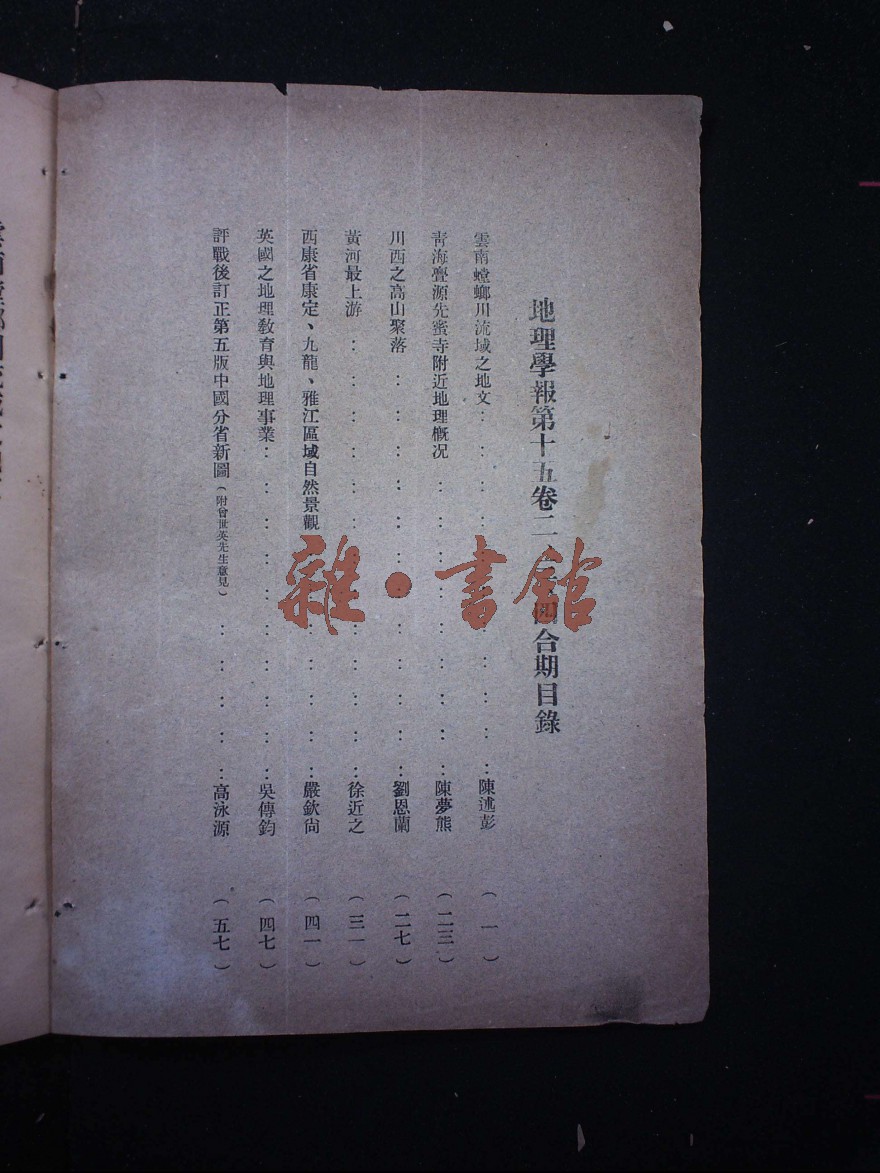 地理學報第十五卷二、三、四合期目錄
雲南螳螂川流域之地文：：：：：：：：：陳述彭（一）
青海亹源先蜜寺附近地理概況：：：：：：：：陳夢熊（二三）
川西之高山聚落：：：：：：：：：：：劉恩蘭（二七）
黃河最上游：：：：：：：：：：：：徐近之（三一）
西康省康定、九龍、雅江區域自然景觀：：：：：：嚴欽尙（四一）
英國之地理教育與地理事業：：：：：：：：：：吳傳鈞（四七）
評戰後訂正第五版中國分省新圖（附曾世英先生意見）：：：：：高泳源（五七）
雜·書館